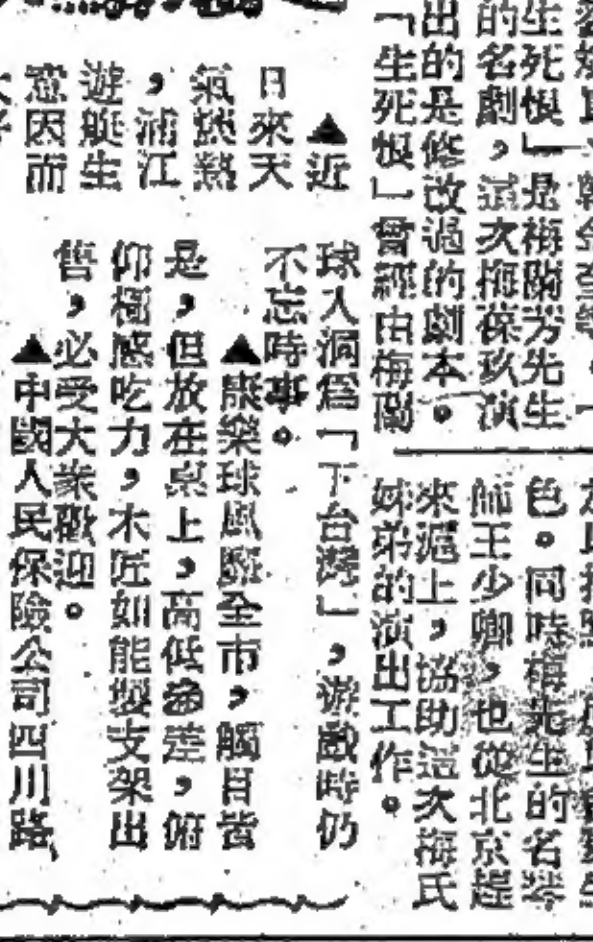 生死恨」是梅蘭芳先生
的名劇，這次梅葆玖演
出的是修改過的劇本。
「生死恨」曾經由梅蘭
色。同時梅先生的名琴
師王少卿，也從北京趕
來滬上，協助這次梅氏
姊弟的演出工作。
▲近
日來天
氣熱
，浦江
遊艇生
意因而
球入洞爲「下台灣」，遊戲時仍
不忘時事。
▲康樂球風靡全市，觸目皆
是，但放在桌上，高低參差，俯
仰極感吃力，木匠如能製支架出
售，必受大衆歡迎。
▲中國人民保險公司四川路